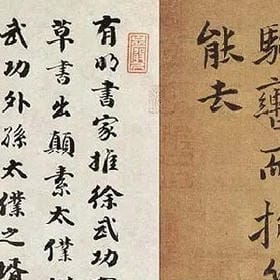 而
能去
有明書家推徐武功
草書出顛素太僕
武功外孫太僕之壻